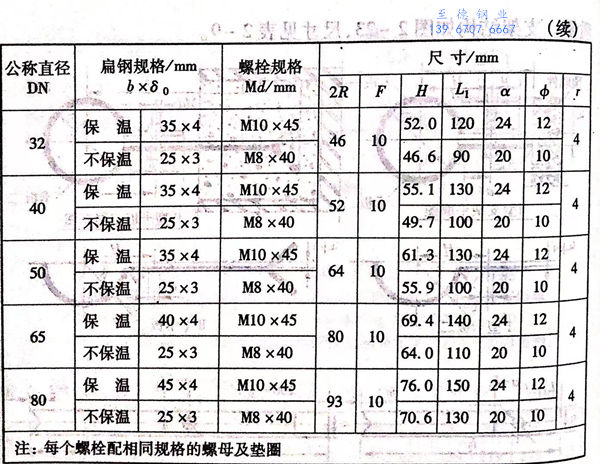 至德钢业
139 6707 6667
(续)
公称直径 DN 扁钢规格/mm b×δ₀ 螺栓规格 Md/mm 尺寸/mm
2R F H L₁ α ϕ r
32 保温 35×4 M10×45 46 10 52.0 120 24 12 4
不保温 25×3 M8×40 46.6 90 20 10
40 保温 35×4 M10×45 52 10 55.1 130 24 12 4
不保温 25×3 M8×40 49.7 100 20 10
50 保温 35×4 M10×45 64 10 61.3 130 24 12 4
不保温 25×3 M8×40 55.9 100 20 10
65 保温 40×4 M10×45 80 10 69.4 140 24 12 4
不保温 25×3 M8×40 64.0 110 20 10
80 保温 45×4 M10×45 93 10 76.0 150 24 12 4
不保温 25×3 M8×40 70.6 130 20 10
注：每个螺栓配相同规格的螺母及垫圈